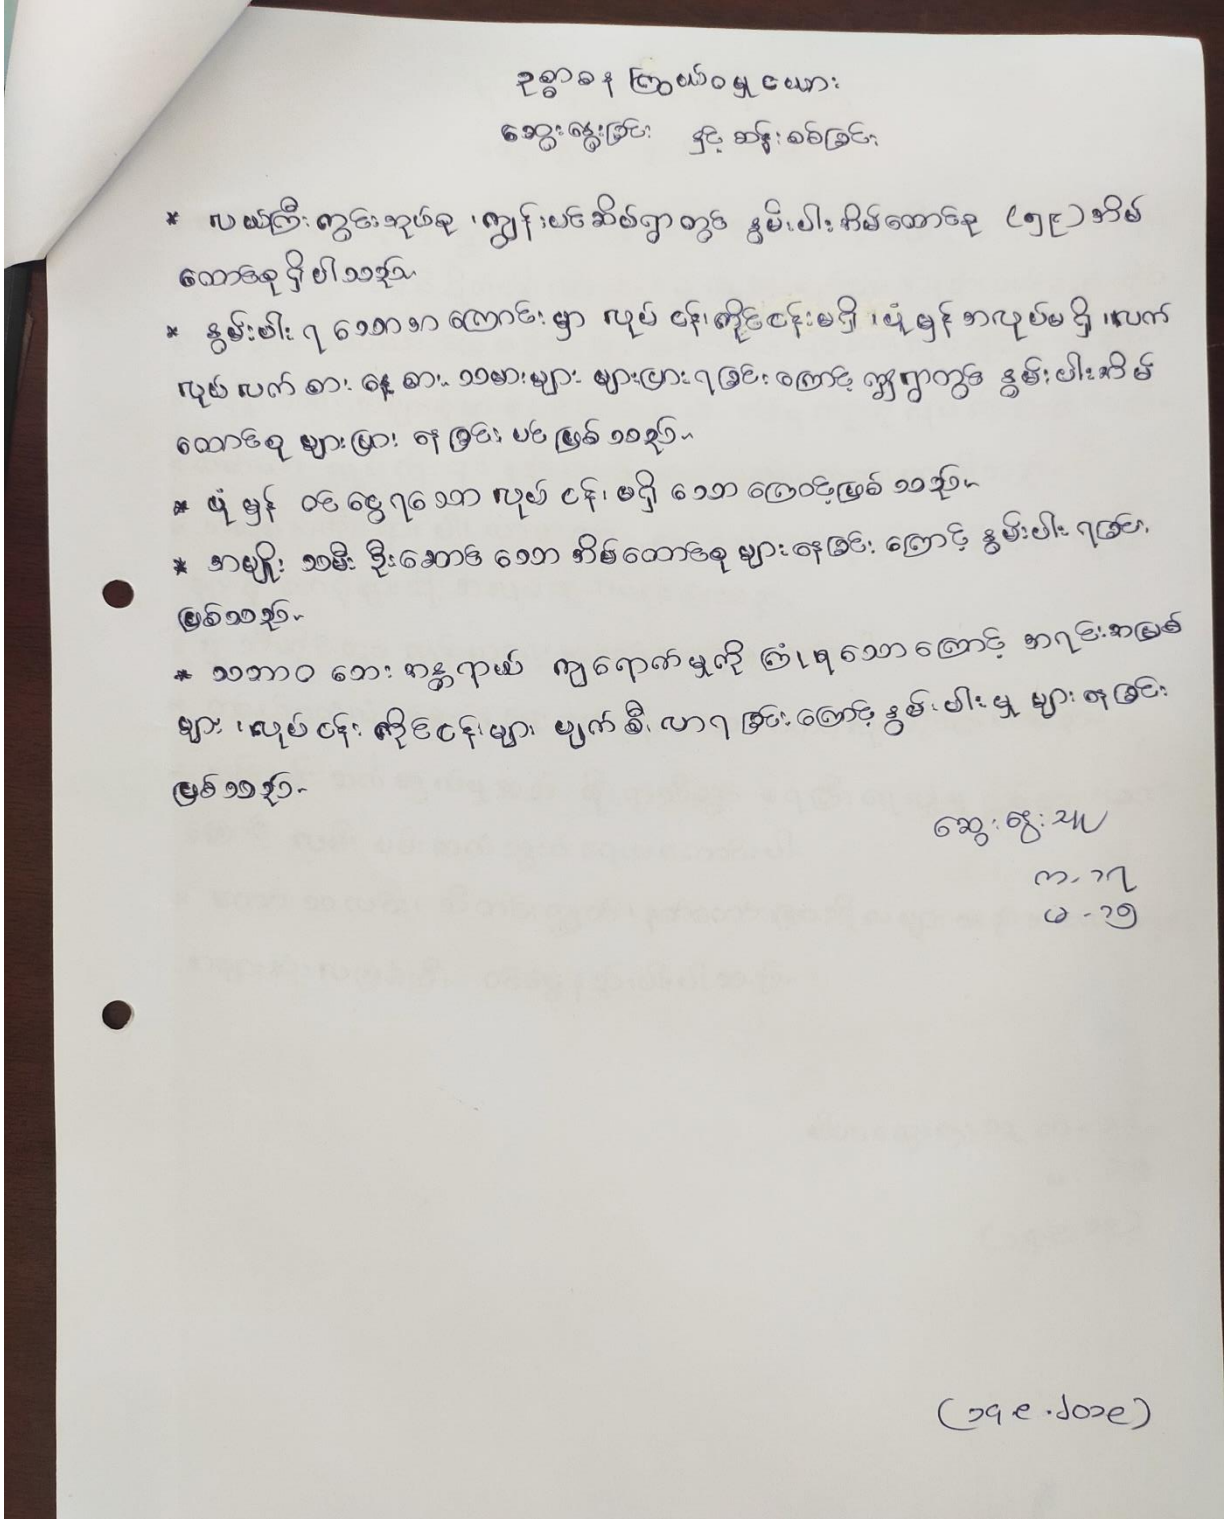 ဥစ္စာဓန ကြွယ်ဝမှုဇယား
ဆွေးနွေးခြင်း နှင့် ဆန်းစစ်ခြင်း
* လယ်ကြီးကွင်းအုပ်စု ၊ကျွန်းပင်ဆိပ်ရွာတွင် နွမ်းပါးအိမ်ထောင်စု (၅၉) အိမ်
ထောင်စုရှိပါသည်။
* နွမ်းပါး ရသောအကြောင်းမှာ လုပ်ငန်းကိုင်ငန်းမရှိ ၊ပုံမှန် အလုပ်မရှိ ၊လက်
လုပ်လက်စား နေ့စား သမားများ များပြားရခြင်းကြောင့် ဤရွာတွင် နွမ်းပါးအိမ်
ထောင်စု များပြား နေခြင်း ပင်ဖြစ်သည်။
* ပုံမှန် ဝင်ငွေရသော လုပ်ငန်း မရှိ သောကြောင့်ဖြစ်သည်။
* အမျိုးသမီး ဦးဆောင်သော အိမ်ထောင်စု များနေခြင်းကြောင့် နွမ်းပါး ရခြင်း
ဖြစ်သည်။
* သဘာဝဘေး အန္တရာယ် ကျရောက်မှုကို ကြုံရသောကြောင့် အရင်းအမြစ်
များ ၊လုပ်ငန်း ကိုင်ငန်းများ ပျက်စီးလာရခြင်းကြောင့် နွမ်းပါးမှု များနေခြင်း
ဖြစ်သည်။
ဆွေးနွေးသူ
က-၁၇
မ-၁၅
(၁၄.၉.၂၀၁၉)